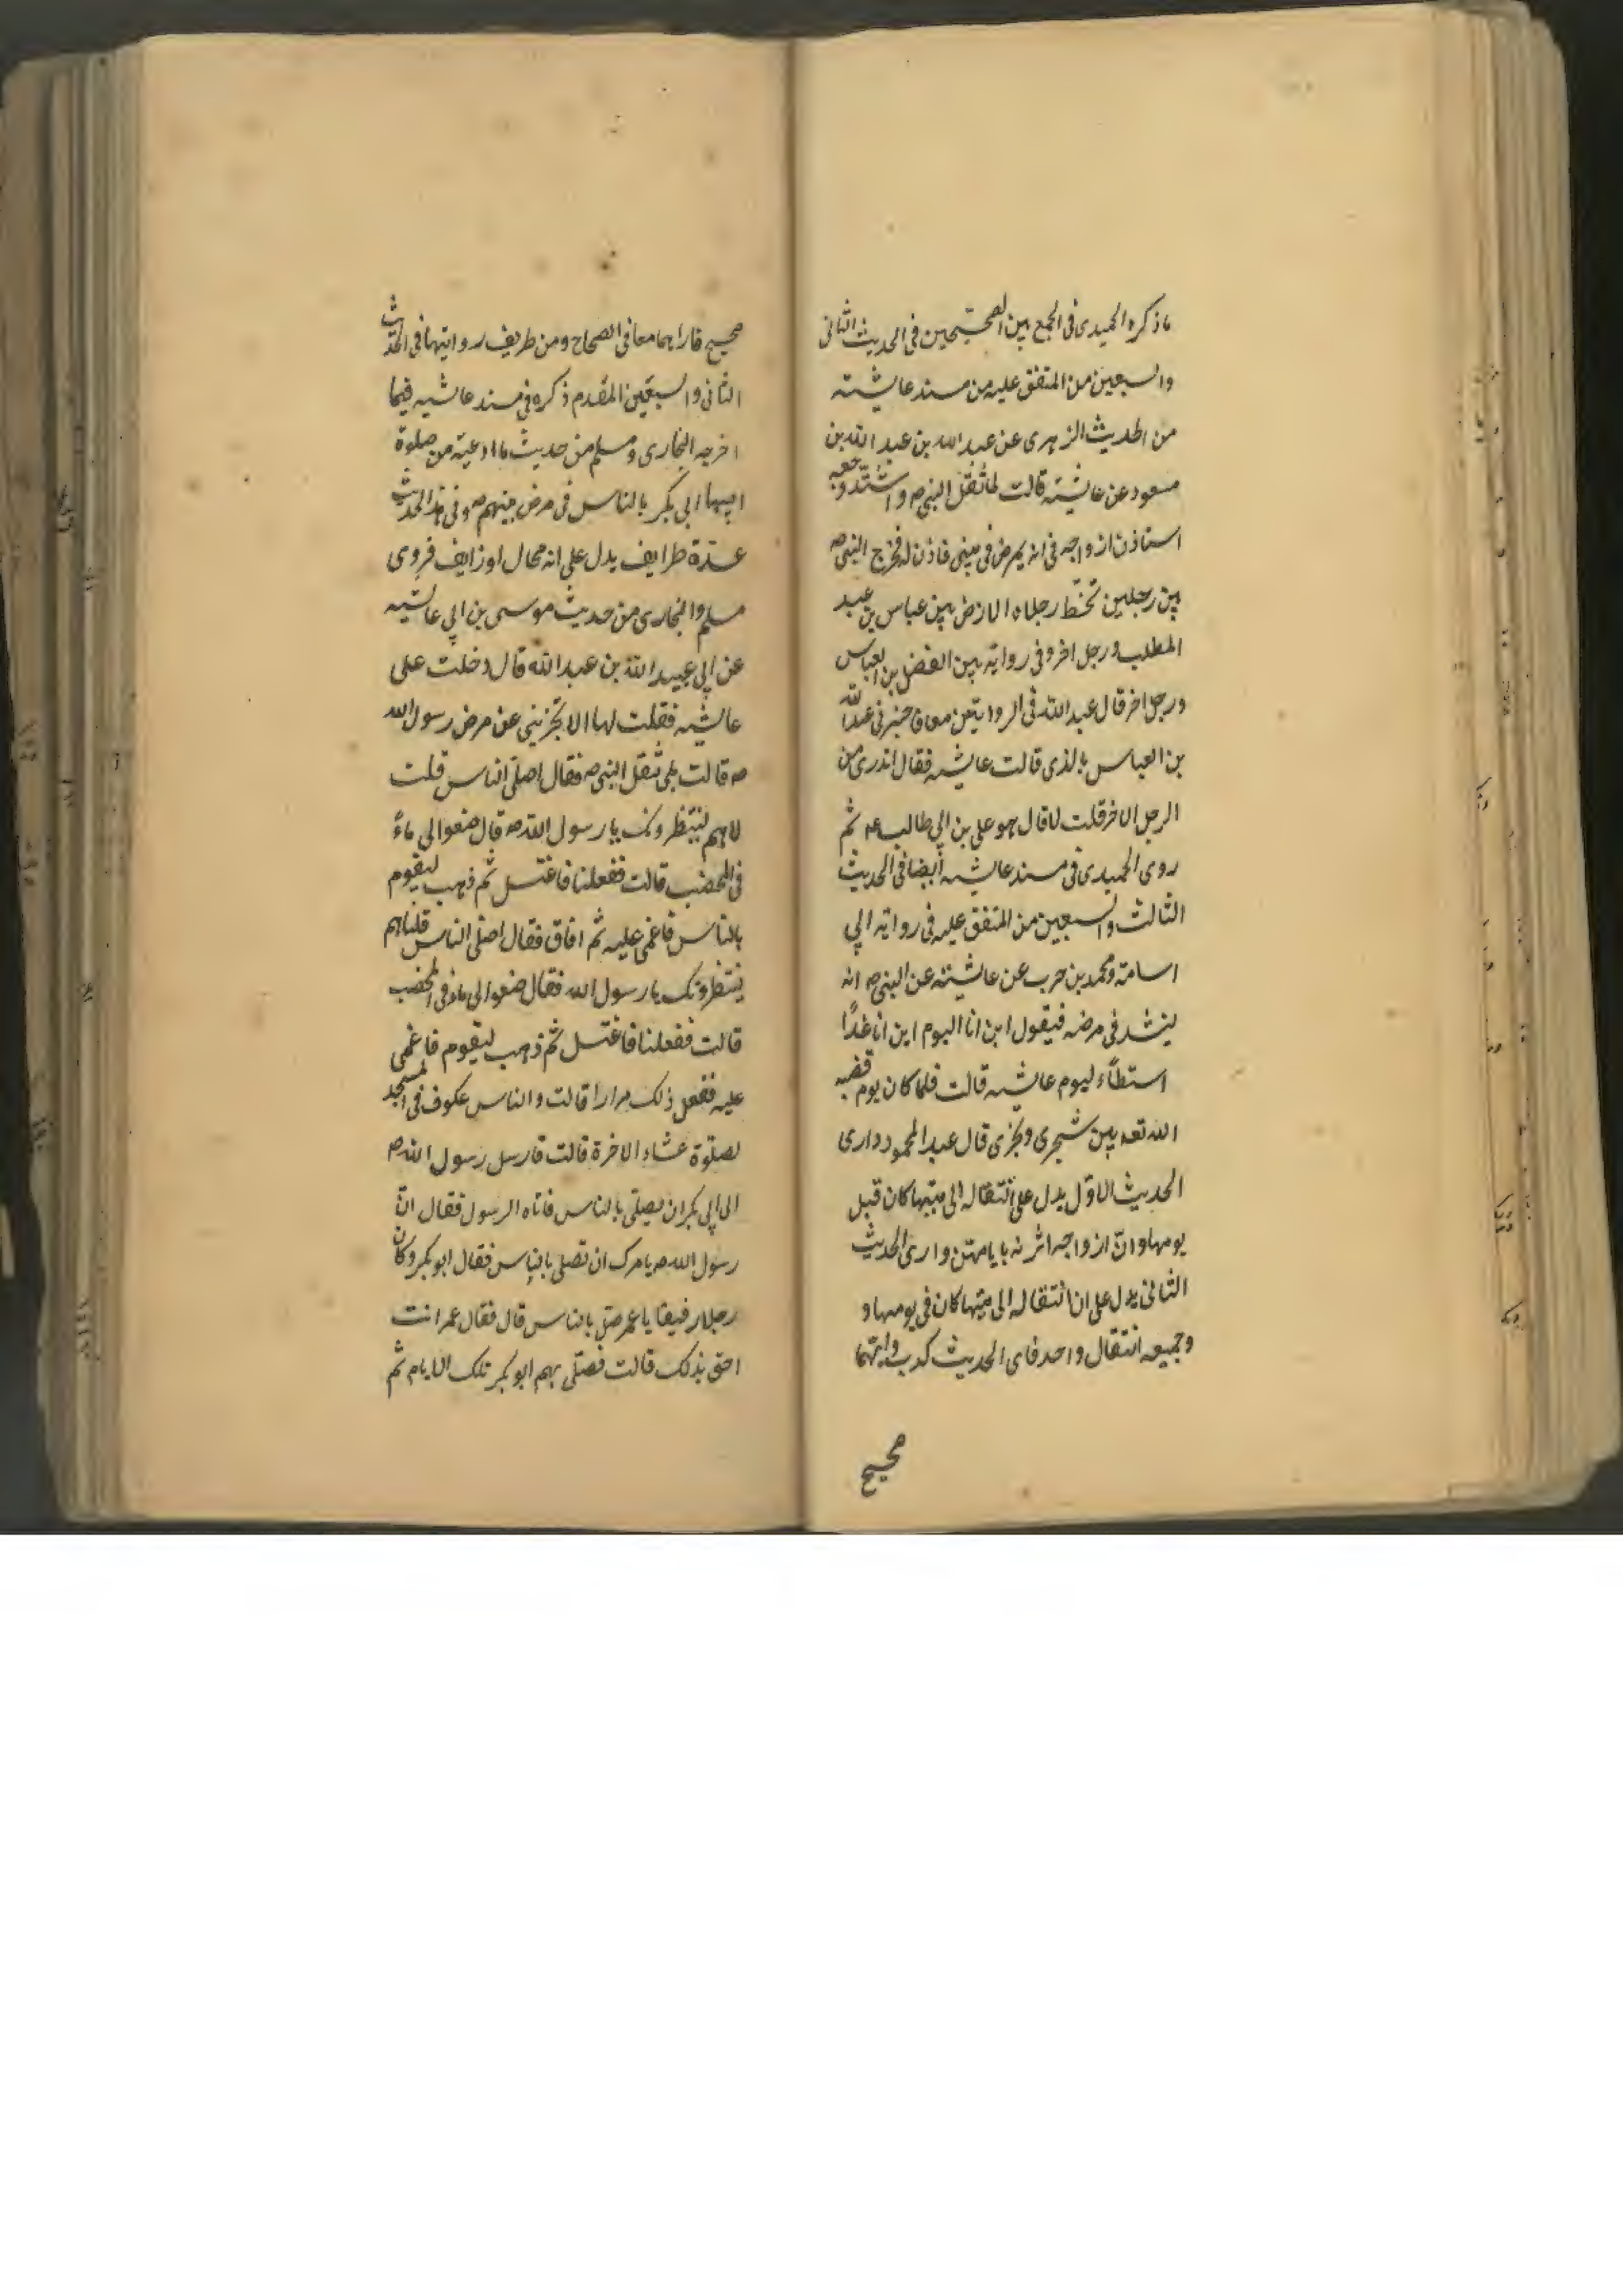 ماذكره الحميدى فى الجمع بين الصحيحين فى الحديث الثانى
والسبعين من المتفق عليه من مسند عايشته
من الحديث الزهرى عن عبد الله بن عبد الله بن
مسعود عن عايشته قالت لما ثقل النبى ص واشتد وجعه
استاذن ازواجه فى انه يمرض فى بيتى فاذن له فخرج النبى ص
بين رجلين تخط رجلاه الارض بين عباس بن عبد
المطلب ورجل اخر وفى رواية بين الفضل بن العباس
ورجل اخر قال عبد الله فى الروايتين معا فاخبر فى عبد الله
بن العباس بالذى قالت عايشه فقال اتدرى من
الرجل الاخر قلت لا قال هو على بن ابى طالب عم ثم
روى الحميدى فى مسند عايشه أيضا فى الحديث
الثالث والسبعين من المتفق عليه فى رواية ابى
اسامة ومحمد بن حرب عن عايشته عن النبى ص انه
ينشد فى مرضه فيقول اين انا اليوم اين انا غدًا
استطاء ليوم عايشه قالت فلما كان يوم قضبه
الله تعه بين شجرى ونجزى قال عبد المحمود دارى
الحديث الاوّل يدل على انتقاله الى بيتها كان قبل
يومها وانّ ازواجه اثرنه بايامهن وارى الحديث
الثانى يدل على ان انتقاله الى بيتها كان فى يومها و
وجميعه انتقال واحد فاى الحديث كذب وايتهما
صحيح
صحيح فاراهما معا فى الصحاح ومن طريف روايتها فى الحديث
الثانى والسبعين المقدم ذكره فى مسند عايشه فيما
اخرجه البخارى ومسلم من حديث ما ادعيته من صلوة
ابيها ابى بكر بالناس فى مرض بينهم ص وفى هذا الحديث
عدة طرايف يدل على انه محال اوزايف فروى
مسلم والبخارى من حديث موسى بن ابى عايشه
عن ابى عبيد الله بن عبد الله قال دخلت على
عايشه فقلت لها الا تخزينى عن مرض رسول الله
ص قالت بلى ثقل النبى ص فقال اصلى الناس قلت
لا هم ينتظرونك يا رسول الله ص قال ضعوا لى ماءً
فى المخضب قالت ففعلنا فاغتسل ثم ذهب ليقوم
بالناس فاغمى عليه ثم افاق فقال اصلى الناس قلنا هم
ينتظرونك يا رسول الله فقال ضعوا لى ماء فى المخضب
قالت ففعلنا فاغتسل ثم ذهب ليقوم فاغمى
عليه ففعل ذلك مرارا قالت والناس عكوف فى المسجد
لصلوة عشاء الاخرة قالت فارسل رسول الله ص
الى ابى بكر ان يصلى بالناس فاتاه الرسول فقال انّ
رسول الله ص يامرك ان تصلى بالناس فقال ابو بكر وكان
رجلا رفيقا يا عمر صل بالناس قال فقال عمر انت
احق بذلك قالت فصلّى بهم ابو بكر تلك الايام ثم